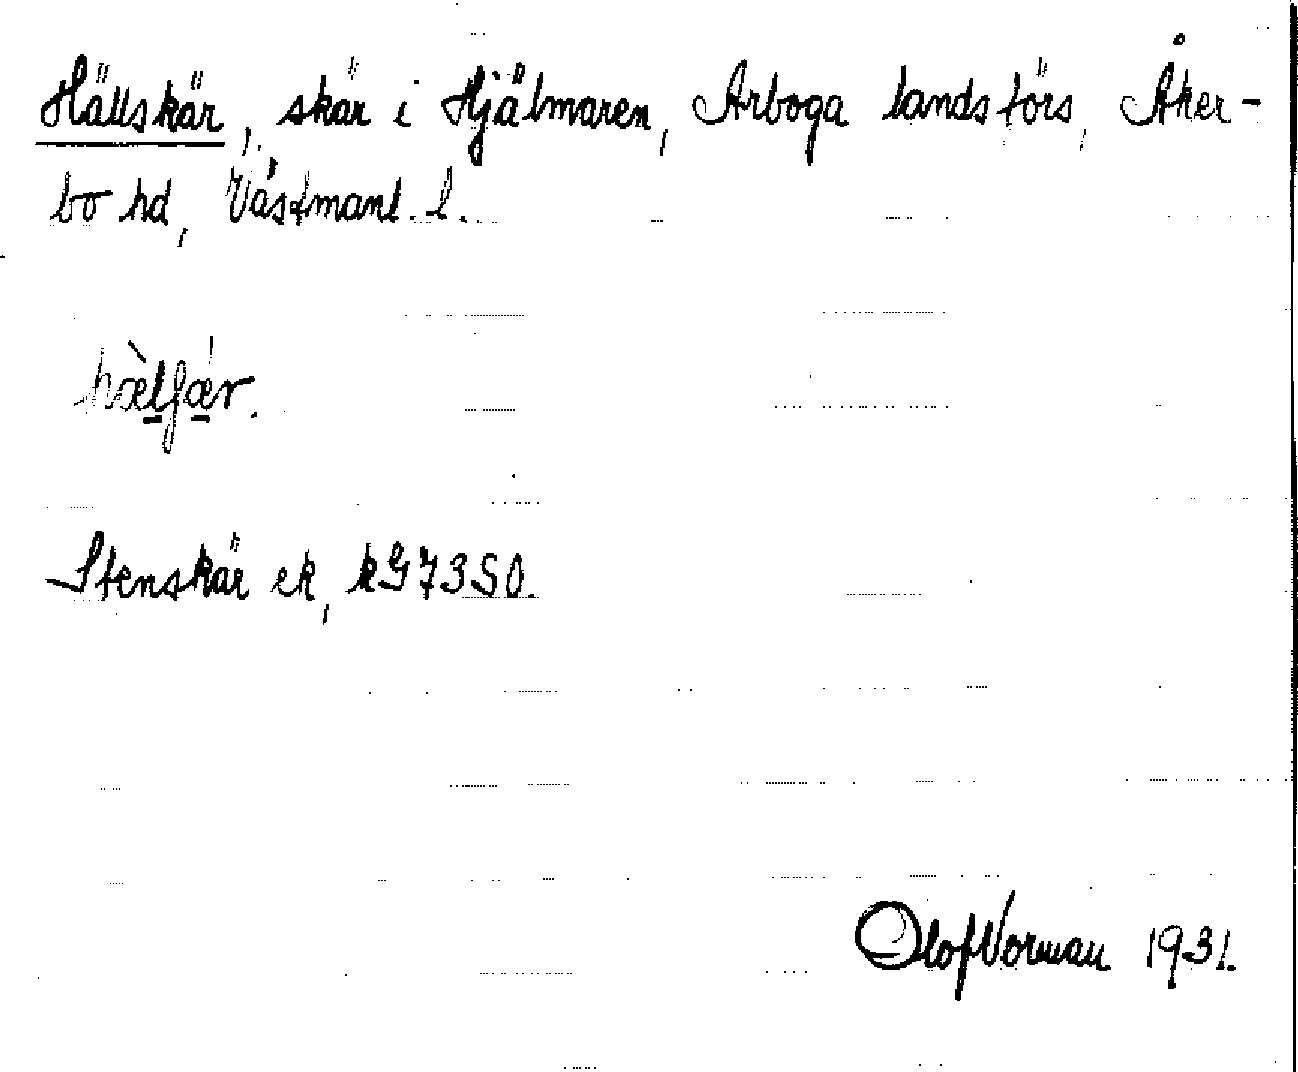 Hällskär, skär i Hjälmaren, Arboga landsförs, Åker-
bo hd, Västmanl. l.
hæ̀lʃǽr.
Stenskär ek, kG7350.
Olof Norman 1931.